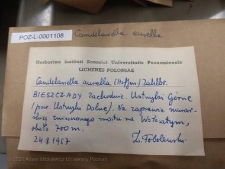 POZ-L-0001108
Candelariella aurella
Herbarium Instituti Botanici Universitatis Posnaniensis
LICHENES POLONIAE
Candelariella aurella (Hoffm.) Zahlbr.
BIESZCZADY Zachodnie. Ustrzyki Górne
(pow. Ustrzyki Dolne). Na zaprawie muru
mostu na Wołosatym,
około 700 m.
24.8.1957
Z. Tobolewski